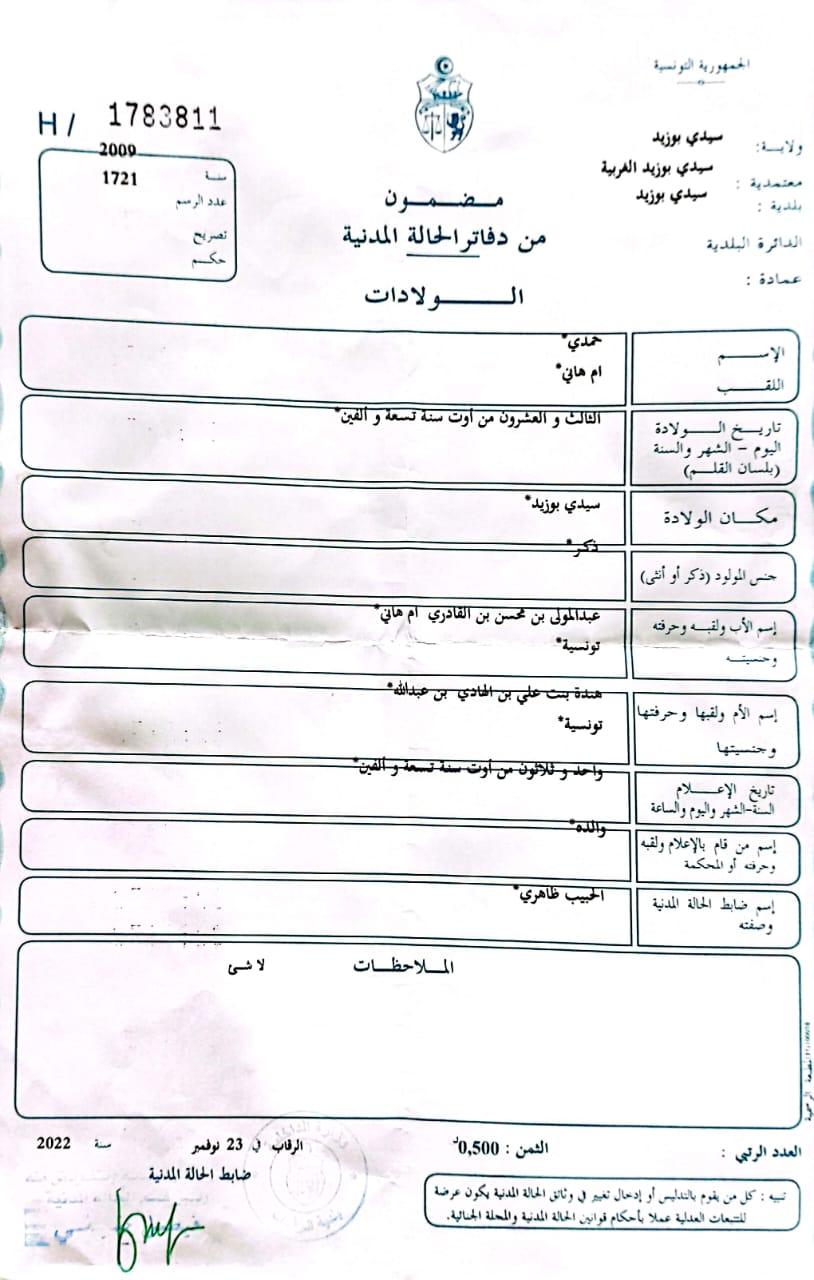 الجمهورية التونسية
ولاية: سيدي بوزيد
معتمدية : سيدي بوزيد الغربية
بلدية : سيدي بوزيد
الدائرة البلدية
عمادة :
H / 1783811
سنة 2009
عدد الرسم 1721
تصريح
حكم
مضمون
من دفاتر الحالة المدنية
الولادات
الإسم حمدي*
اللقب ام هاني*
تاريخ الولادة الثالث و العشرون من أوت سنة تسعة و ألفين*
اليوم - الشهر والسنة
(بلسان القلم)
مكان الولادة سيدي بوزيد*
جنس المولود (ذكر أو أنثى) ذكر*
إسم الأب ولقبه وحرفته عبدالمولى بن محسن بن القادري ام هاني*
وجنسيته تونسية*
إسم الأم ولقبها وحرفتها هندة بنت علي بن الهادي بن عبدالله*
وجنسيتها تونسية*
تاريخ الإعلام واحد و ثلاثون من أوت سنة تسعة و ألفين*
السنة-الشهر واليوم والساعة
إسم من قام بالإعلام ولقبه والده*
وحرفته أو المحكمة
إسم ضابط الحالة المدنية الحبيب ظاهري*
وصفته
الملاحظات لا شئ
العدد الرتبي :
الثمن : 0,500د
الرقاب في 23 نوفمبر سنة 2022
ضابط الحالة المدنية
تنبيه : كل من يقوم بالتدليس أو إدخال تغيير في وثائق الحالة المدنية يكون عرضة
للتتبعات العدلية عملا بأحكام قوانين الحالة المدنية والمجلة الجنائية.